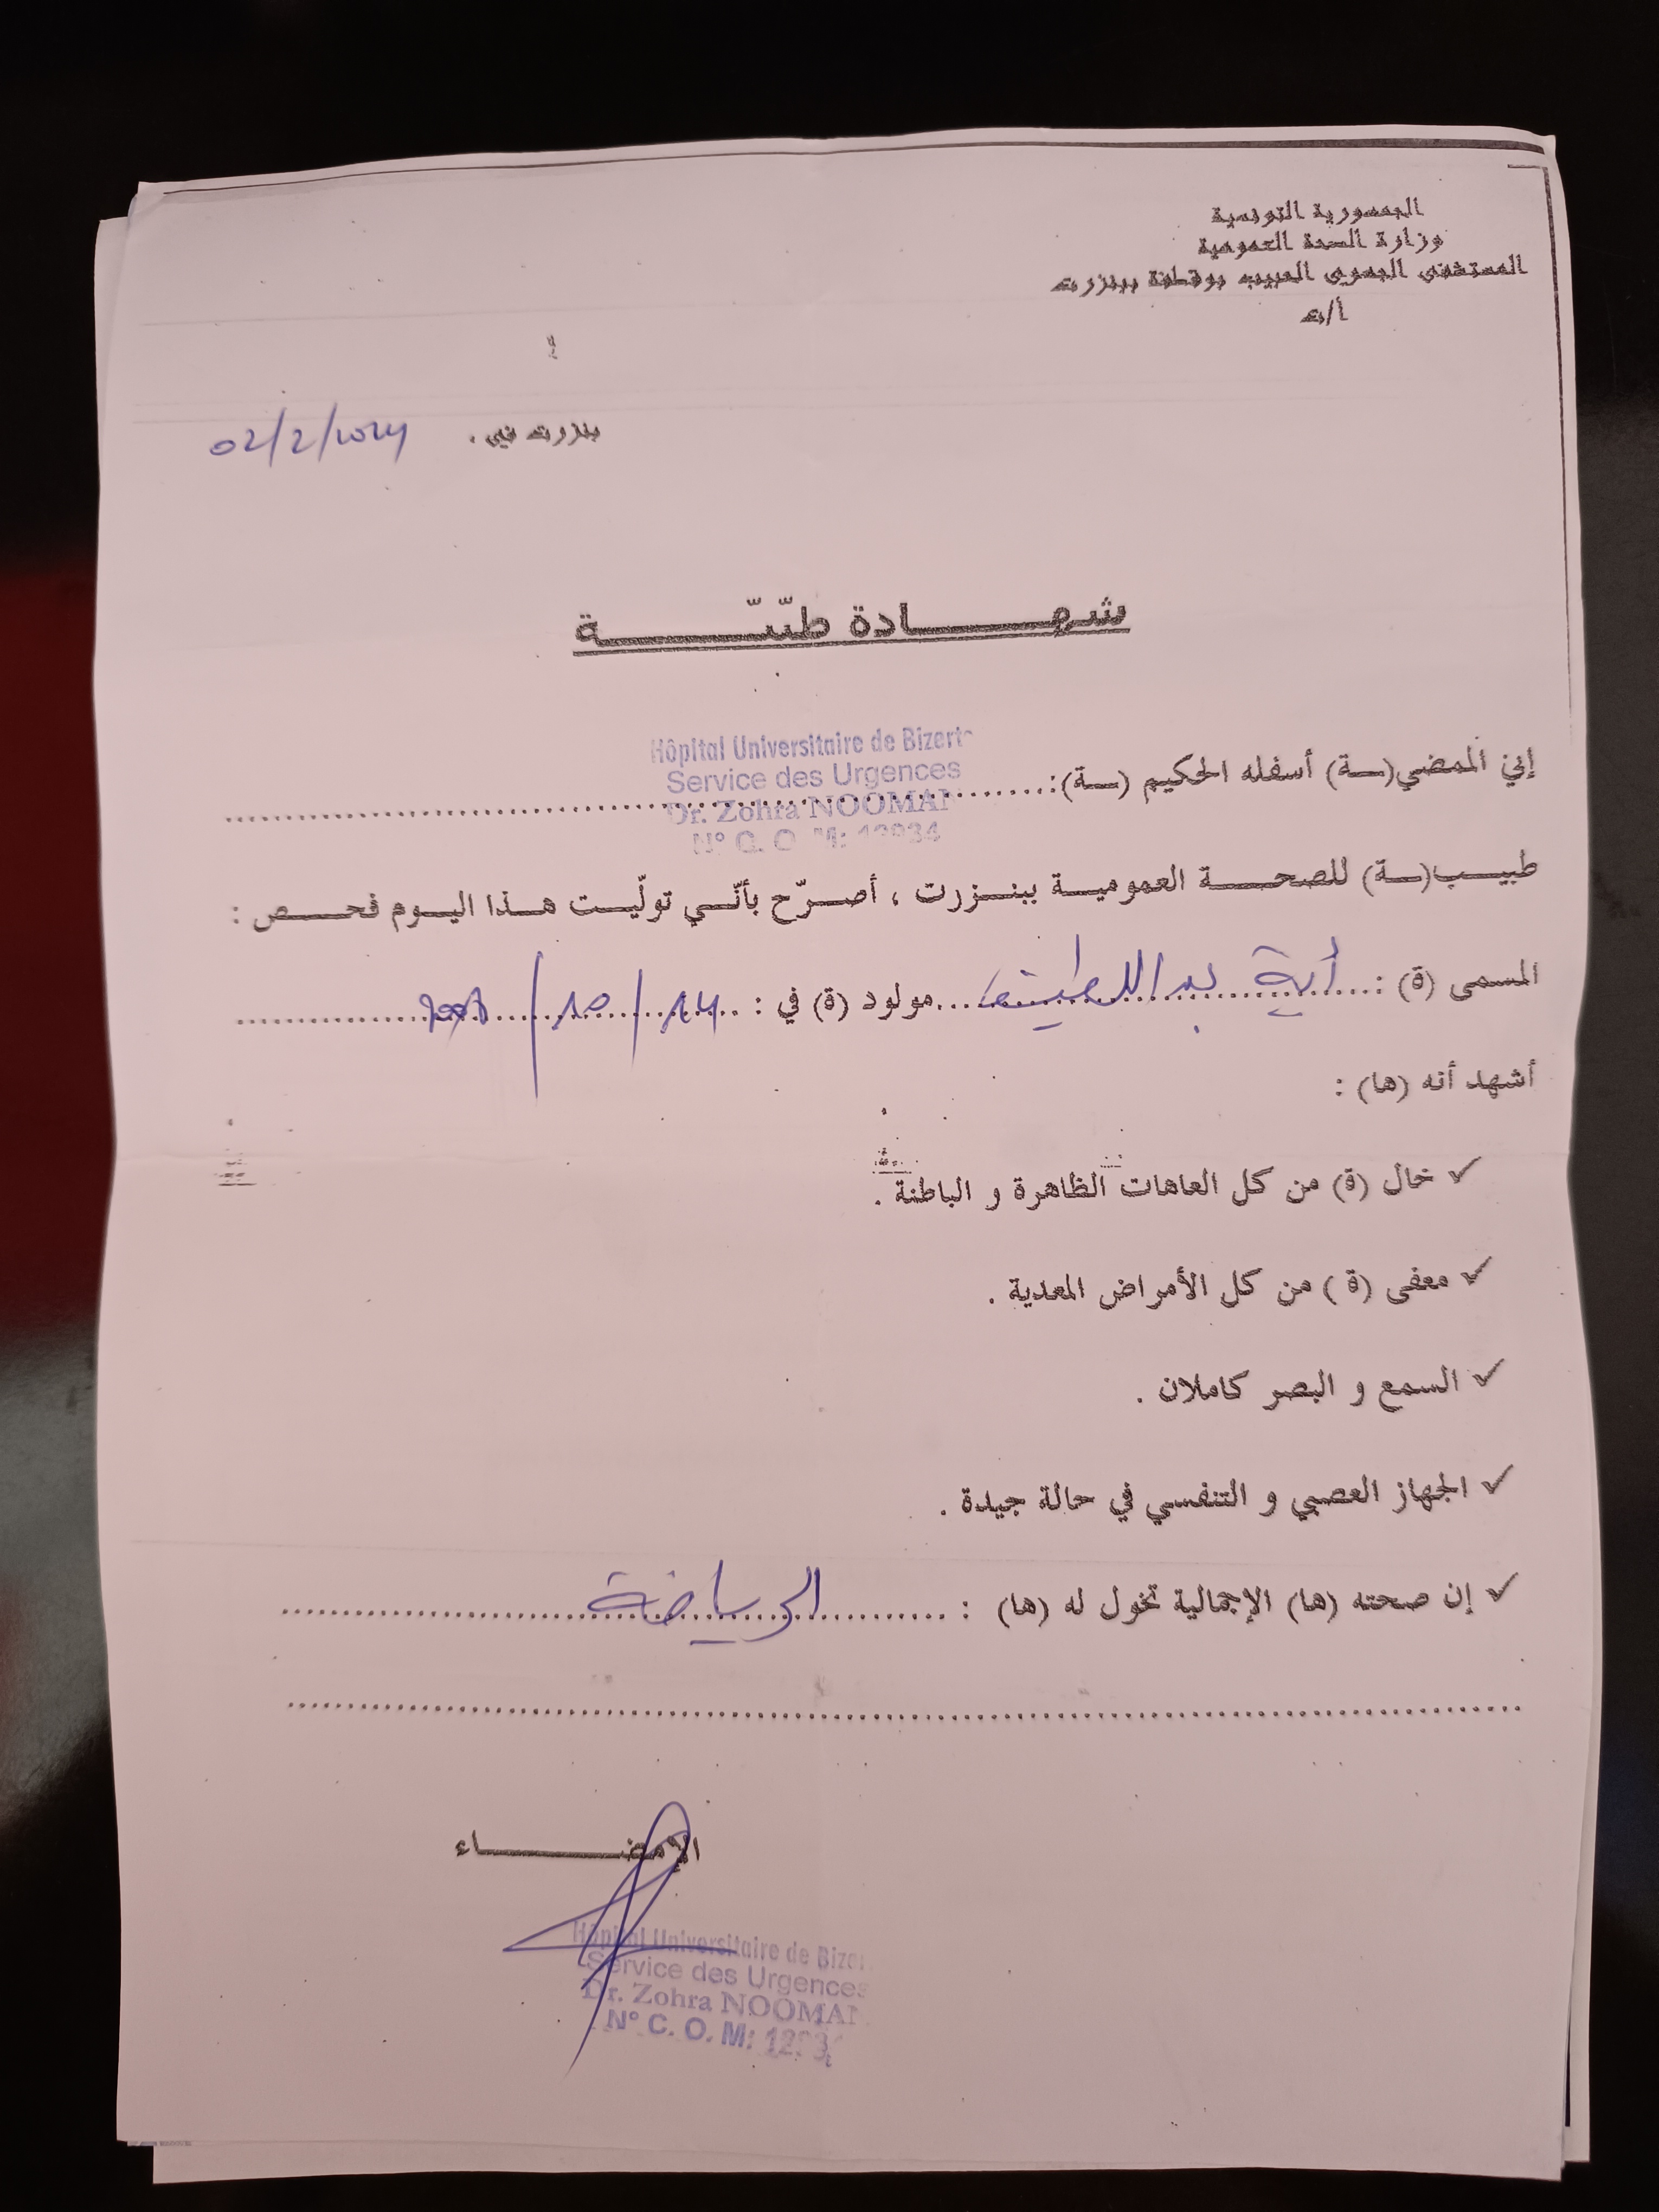 الجمهورية التونسية
وزارة الصحة العمومية
المستشفى الجهوي الحبيب بوقطفة ببنزرت
أ/ع
بنزرت في . 02/2/2024
شهــــادة طبّيّــــة
إني الممضي(ــة) أسفله الحكيم (ــة):
Hôpital Universitaire de Bizert
Service des Urgences
Dr. Zohra NOOMAN
N° C. O. M:
طبيــب(ــة) للصحــــة العموميــة ببنــزرت ، أصــرّح بأنّــي تولّيــت هــذا اليــوم فحــص :
المسمى (ة) : أية عبد اللطيف مولود (ة) في : 14/10/
أشهد أنه (ها) :
✓ خال (ة) من كل العاهات الظاهرة و الباطنة .
✓ معفى (ة ) من كل الأمراض المعدية .
✓ السمع و البصر كاملان .
✓ الجهاز العصبي و التنفسي في حالة جيدة .
✓ إن صحته (ها) الإجمالية تخول له (ها) : الرياضة
الإمضــــاء
Hôpital Universitaire de Bizer
Service des Urgences
Dr. Zohra NOOMAN
N° C. O. M: